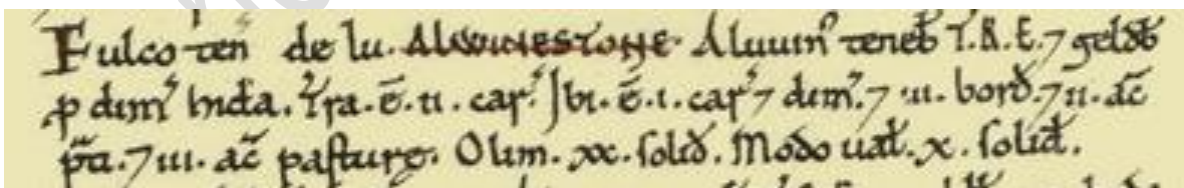 Fulco teñ de lu. ALWINESTONE. Aluuin᾽ teneb̄ T.R.E. ⁊ geldb̄
p dim᾽ hida. T᾽ra. ē. ii. car᾽. Ibi. ē. i. car᾽ ⁊ dim᾽. ⁊ iii. bord̄. ⁊ ii. ac̄
p̃ti. ⁊ iii. ac̄ pasturę. Olim. xx. solid̄. Modo ual̄. x. solid̄.